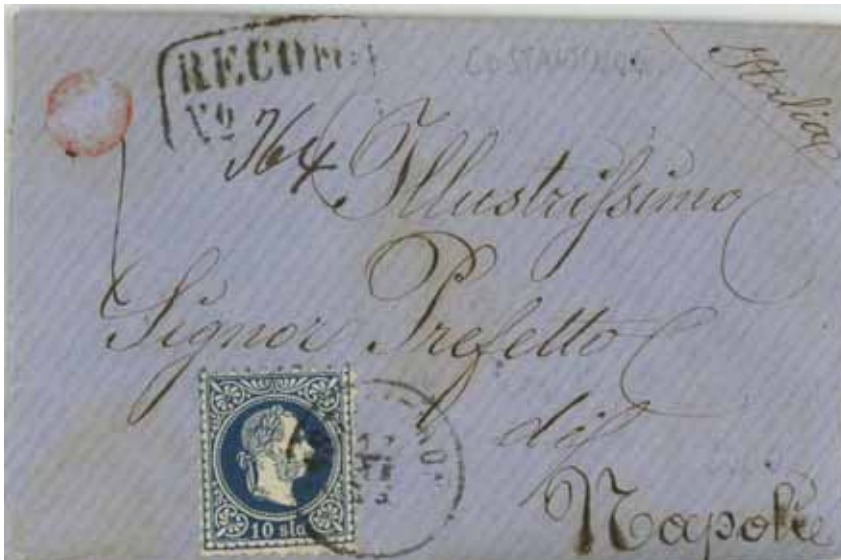 RECOM:
Nº 764
COSTANTINOP.
Italia
Illustrissimo
Signor Prefetto
di
Napoli
10 sld